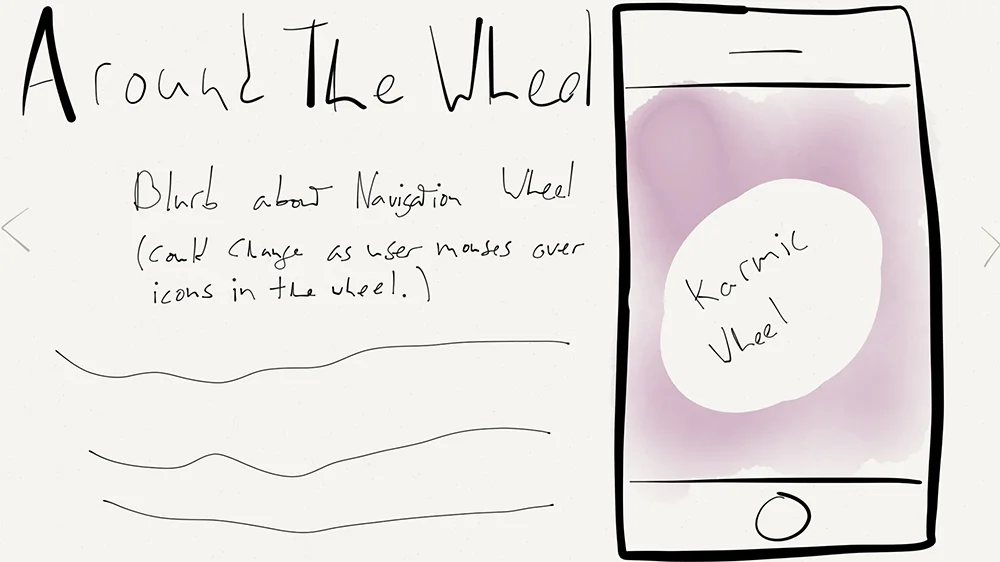 Around The Wheel
Blurb about Navigation Wheel
(could change as user mouses over
icons in the wheel.)
Karmic
Wheel